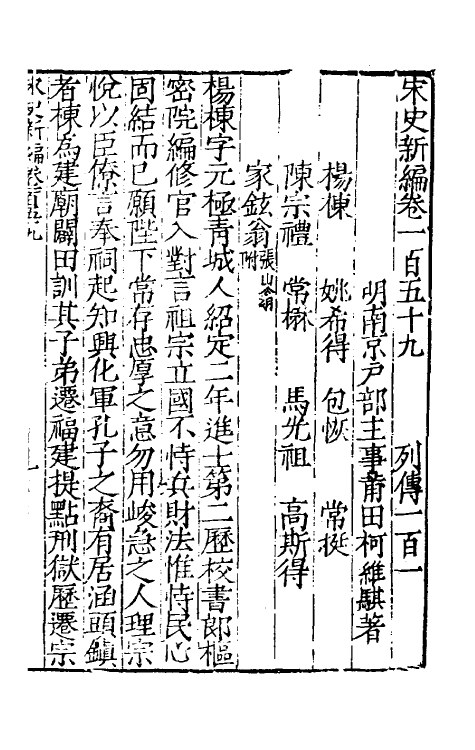 宋史新編卷一百五十九　列傳一百一
明南京戶部主事莆田柯維騏著
楊棟　姚希得　包恢　常挺
陳宗禮　常楙　馬光祖　高斯得
家鉉翁　張山翁附
楊棟字元極青城人紹定二年進士第二歷校書郎樞
密院編修官入對言祖宗立國不恃兵財法惟恃民心
固結而已願陛下常存忠厚之意勿用峻急之人理宗
悅以臣僚言奉祠起知興化軍孔子之裔有居涵頭鎮
者棟為建廟闢田訓其子弟遷福建提點刑獄歷遷宗
宋史新編卷一百五十九　一